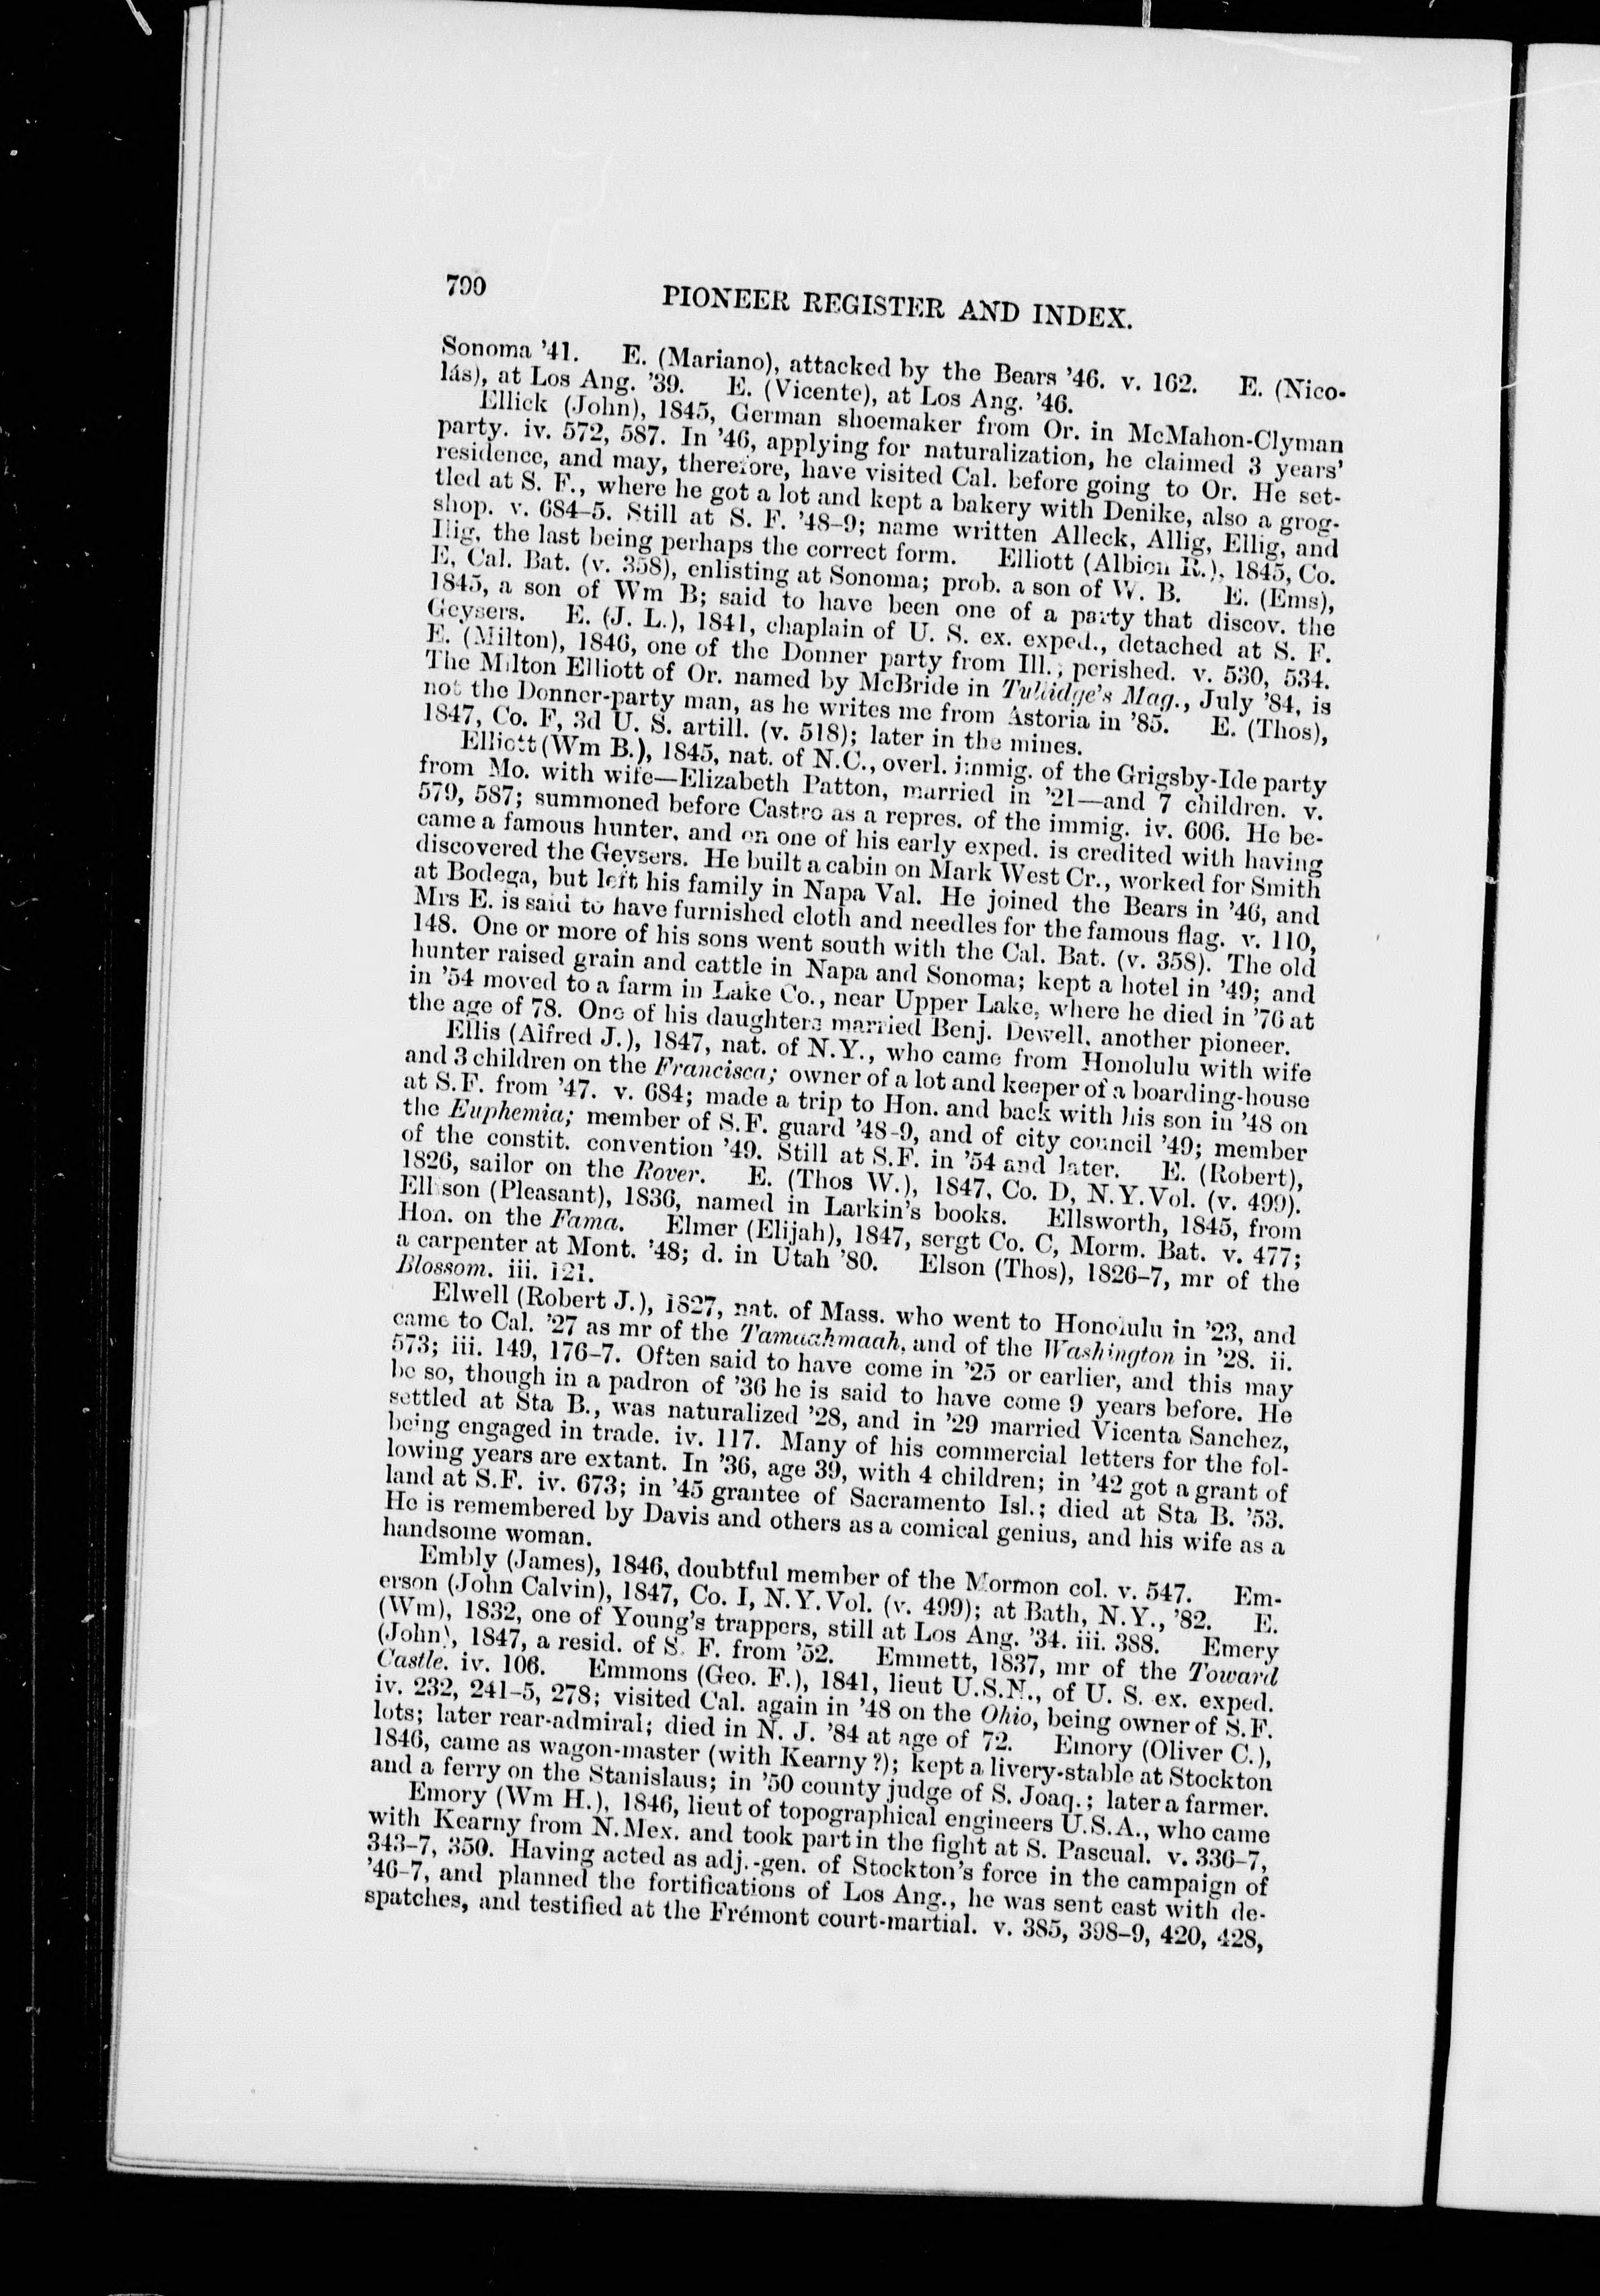 790
PIONEER REGISTER AND INDEX.
Sonoma '41. E. (Mariano), attacked by the Bears '46. v. 162. E. (Nico-
lás), at Los Ang. '39. E. (Vicente), at Los Ang. '46.
Ellick (John), 1845, German shoemaker from Or. in McMahon-Clyman
party. iv. 572, 587. In '46, applying for naturalization, he claimed 3 years'
residence, and may, therefore, have visited Cal. before going to Or. He set-
tled at S. F., where he got a lot and kept a bakery with Denike, also a grog-
shop. v. 684-5. Still at S. F. '48-9; name written Alleck, Allig, Ellig, and
Ilig, the last being perhaps the correct form. Elliott (Albion R.), 1845, Co.
E, Cal. Bat. (v. 358), enlisting at Sonoma; prob. a son of W. B. E. (Ems),
1845, a son of Wm B; said to have been one of a party that discov. the
Geysers. E. (J. L.), 1841, chaplain of U. S. ex. exped., detached at S. F.
E. (Milton), 1846, one of the Donner party from Ill.; perished. v. 530, 534.
The Milton Elliott of Or. named by McBride in Tullidge's Mag., July '84, is
not the Donner-party man, as he writes me from Astoria in '85. E. (Thos),
1847, Co. F, 3d U. S. artill. (v. 518); later in the mines.
Elliott (Wm B.), 1845, nat. of N.C., overl. immig. of the Grigsby-Ide party
from Mo. with wife—Elizabeth Patton, married in '21—and 7 children. v.
579, 587; summoned before Castro as a repres. of the immig. iv. 606. He be-
came a famous hunter, and on one of his early exped. is credited with having
discovered the Geysers. He built a cabin on Mark West Cr., worked for Smith
at Bodega, but left his family in Napa Val. He joined the Bears in '46, and
Mrs E. is said to have furnished cloth and needles for the famous flag. v. 110,
148. One or more of his sons went south with the Cal. Bat. (v. 358). The old
hunter raised grain and cattle in Napa and Sonoma; kept a hotel in '49; and
in '54 moved to a farm in Lake Co., near Upper Lake, where he died in '76 at
the age of 78. One of his daughters married Benj. Dewell, another pioneer.
Ellis (Alfred J.), 1847, nat. of N.Y., who came from Honolulu with wife
and 3 children on the Francisca; owner of a lot and keeper of a boarding-house
at S.F. from '47. v. 684; made a trip to Hon. and back with his son in '48 on
the Euphemia; member of S.F. guard '48-9, and of city council '49; member
of the constit. convention '49. Still at S.F. in '54 and later. E. (Robert),
1826, sailor on the Rover. E. (Thos W.), 1847, Co. D, N.Y.Vol. (v. 499).
Ellison (Pleasant), 1836, named in Larkin's books. Ellsworth, 1845, from
Hon. on the Fama. Elmer (Elijah), 1847, sergt Co. C, Morm. Bat. v. 477;
a carpenter at Mont. '48; d. in Utah '80. Elson (Thos), 1826-7, mr of the
Blossom. iii. 121.
Elwell (Robert J.), 1827, nat. of Mass. who went to Honolulu in '23, and
came to Cal. '27 as mr of the Tamaahmaah, and of the Washington in '28. ii.
573; iii. 149, 176-7. Often said to have come in '25 or earlier, and this may
be so, though in a padron of '36 he is said to have come 9 years before. He
settled at Sta B., was naturalized '28, and in '29 married Vicenta Sanchez,
being engaged in trade. iv. 117. Many of his commercial letters for the fol-
lowing years are extant. In '36, age 39, with 4 children; in '42 got a grant of
land at S.F. iv. 673; in '45 grantee of Sacramento Isl.; died at Sta B. '53.
He is remembered by Davis and others as a comical genius, and his wife as a
handsome woman.
Embly (James), 1846, doubtful member of the Mormon col. v. 547. Em-
erson (John Calvin), 1847, Co. I, N.Y.Vol. (v. 499); at Bath, N.Y., '82. E.
(Wm), 1832, one of Young's trappers, still at Los Ang. '34. iii. 388. Emery
(John), 1847, a resid. of S. F. from '52. Emmett, 1837, mr of the Toward
Castle. iv. 106. Emmons (Geo. F.), 1841, lieut U.S.N., of U. S. ex. exped.
iv. 232, 241-5, 278; visited Cal. again in '48 on the Ohio, being owner of S.F.
lots; later rear-admiral; died in N. J. '84 at age of 72. Emory (Oliver C.),
1846, came as wagon-master (with Kearny?); kept a livery-stable at Stockton
and a ferry on the Stanislaus; in '50 county judge of S. Joaq.; later a farmer.
Emory (Wm H.), 1846, lieut of topographical engineers U.S.A., who came
with Kearny from N. Mex. and took part in the fight at S. Pascual. v. 336-7,
343-7, 350. Having acted as adj.-gen. of Stockton's force in the campaign of
'46-7, and planned the fortifications of Los Ang., he was sent east with de-
spatches, and testified at the Frémont court-martial. v. 385, 398-9, 420, 428,